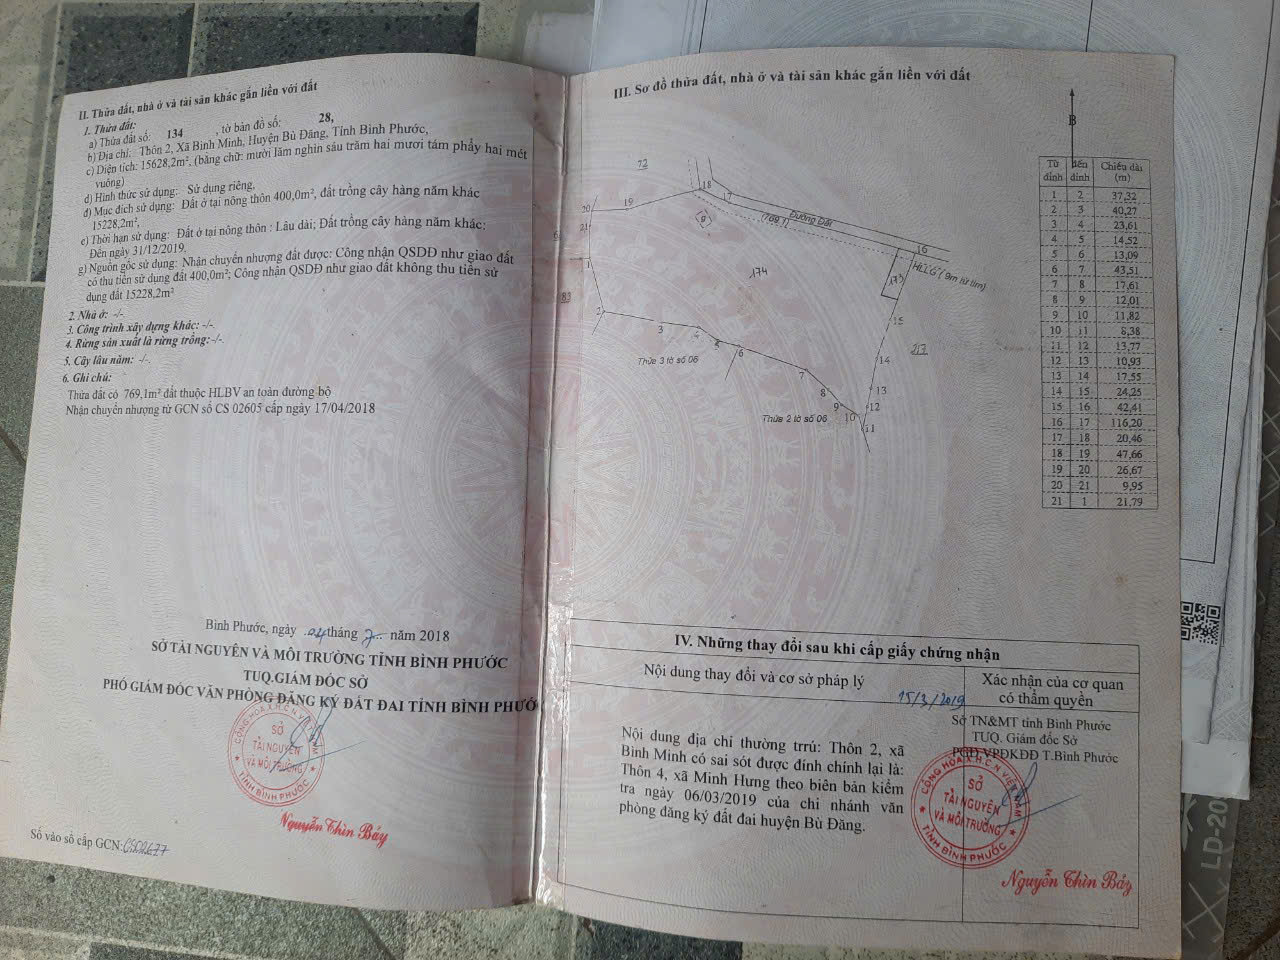 II. Thửa đất, nhà ở và tài sản khác gắn liền với đất
1. Thửa đất:
a) Thửa đất số: 134 , tờ bản đồ số: 28,
b) Địa chỉ: Thôn 2, Xã Bình Minh, Huyện Bù Đăng, Tỉnh Bình Phước,
c) Diện tích: 15628,2m², (bằng chữ: mười lăm nghìn sáu trăm hai mươi tám phẩy hai mét
vuông)
d) Hình thức sử dụng: Sử dụng riêng,
đ) Mục đích sử dụng: Đất ở tại nông thôn 400,0m², đất trồng cây hàng năm khác
15228,2m²,
e) Thời hạn sử dụng: Đất ở tại nông thôn : Lâu dài; Đất trồng cây hàng năm khác:
Đến ngày 31/12/2019,
g) Nguồn gốc sử dụng: Nhận chuyển nhượng đất được: Công nhận QSDĐ như giao đất
có thu tiền sử dụng đất 400,0m²; Công nhận QSDĐ như giao đất không thu tiền sử
dụng đất 15228,2m²
2. Nhà ở: -/-
3. Công trình xây dựng khác: -/-
4. Rừng sản xuất là rừng trồng: -/-
5. Cây lâu năm: -/-
6. Ghi chú:
Thửa đất có 769,1m² đất thuộc HLBV an toàn đường bộ
Nhận chuyển nhượng từ GCN số CS 02605 cấp ngày 17/04/2018
Bình Phước, ngày 04 tháng 7 năm 2018
SỞ TÀI NGUYÊN VÀ MÔI TRƯỜNG TỈNH BÌNH PHƯỚC
TUQ.GIÁM ĐỐC SỞ
PHÓ GIÁM ĐỐC VĂN PHÒNG ĐĂNG KÝ ĐẤT ĐAI TỈNH BÌNH PHƯỚC
CỘNG HÒA X.H.C.N VIỆT NAM
SỞ
TÀI NGUYÊN
VÀ MÔI TRƯỜNG
TỈNH BÌNH PHƯỚC
Nguyễn Thìn Bảy
Số vào sổ cấp GCN: CS02677
III. Sơ đồ thửa đất, nhà ở và tài sản khác gắn liền với đất
B
72
18
17
20
19
21
9
(769.1)
Đường Đất
16
HLLG (9m từ tim)
174
173
1
83
2
3
4
5
6
Thửa 3 tờ số 06
7
8
9
10
11
12
13
14
15
217
Thửa 2 tờ số 06
Từ đỉnh đến đỉnh Chiều dài (m)
1 2 37,32
2 3 40,27
3 4 23,61
4 5 14,52
5 6 13,09
6 7 43,51
7 8 17,61
8 9 12,01
9 10 11,82
10 11 8,38
11 12 13,77
12 13 10,93
13 14 17,55
14 15 24,25
15 16 42,41
16 17 116,20
17 18 20,46
18 19 47,66
19 20 26,67
20 21 9,95
21 1 21,79
IV. Những thay đổi sau khi cấp giấy chứng nhận
Nội dung thay đổi và cơ sở pháp lý
Xác nhận của cơ quan
có thẩm quyền
15/3/2019
Nội dung địa chỉ thường trrú: Thôn 2, xã
Bình Minh có sai sót được đính chính lại là:
Thôn 4, xã Minh Hưng theo biên bản kiểm
tra ngày 06/03/2019 của chi nhánh văn
phòng đăng ký đất đai huyện Bù Đăng.
Sở TN&MT tỉnh Bình Phước
TUQ. Giám đốc Sở
PGĐ VPĐKĐĐ T.Bình Phước
CỘNG HÒA X.H.C.N VIỆT NAM
SỞ
TÀI NGUYÊN
VÀ MÔI TRƯỜNG
TỈNH BÌNH PHƯỚC
Nguyễn Thìn Bảy
LD-20